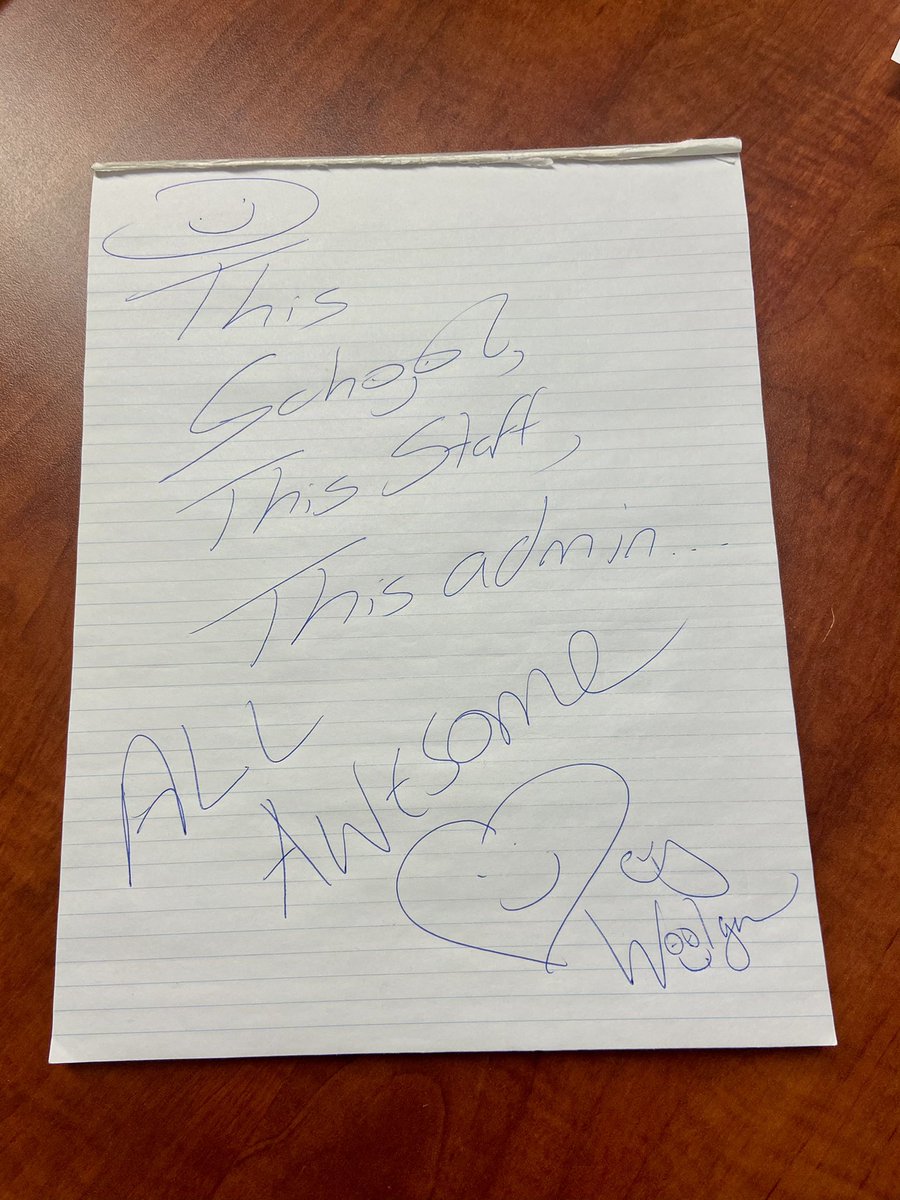 This
School,
This Staff,
This admin...
ALL
AWESOME